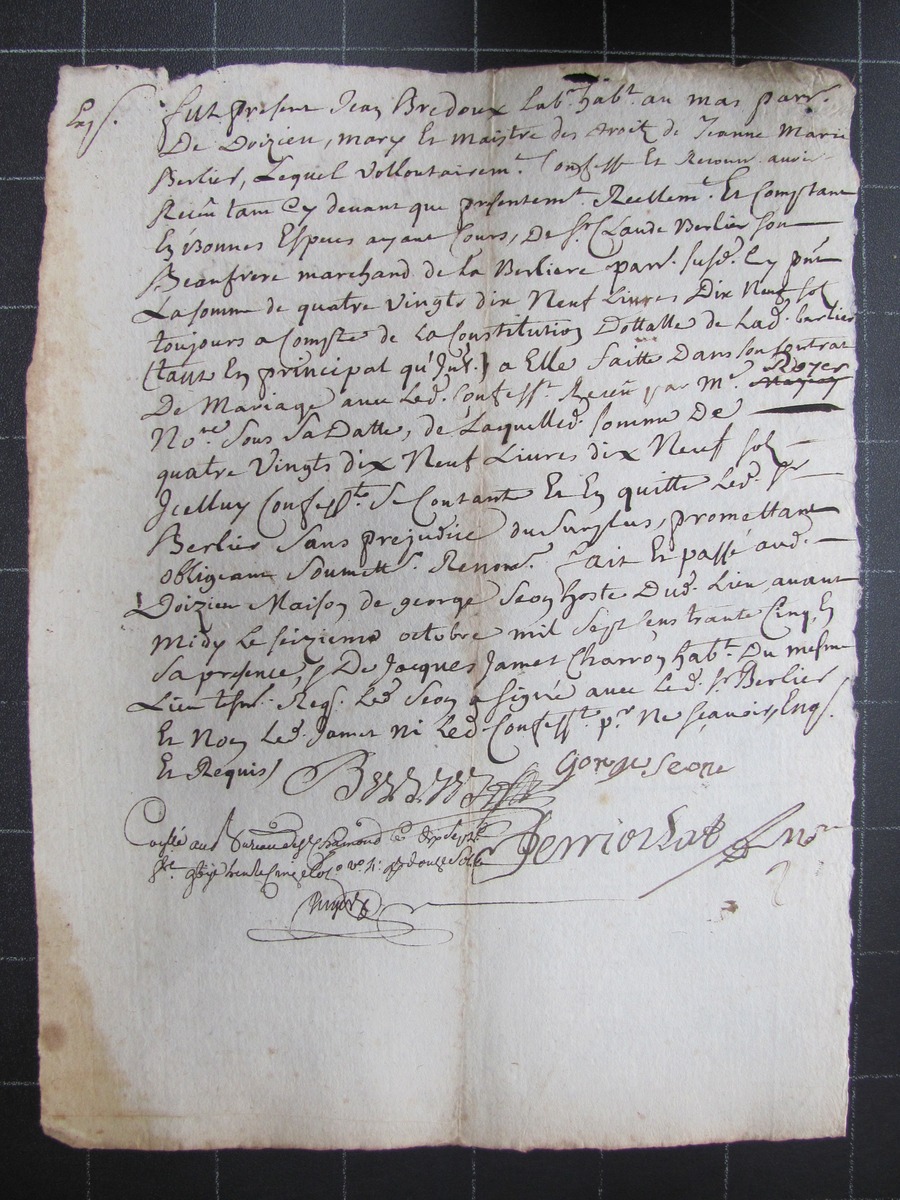 Fut present Jean Bredoux lab.r hab.t au mas parr.
De Doizieu, mary Et maistre des droitz de Jeanne Marie
Berlier, Lequel Vollontairem.t Confesse Et Reconn. avoir
Receu tant Cy devant que presentem.t Reellem.t Et Comptant
En Bonnes Especes ayant Cours, De S.r Claude Berlier son
Beaufrere marchand de la Berliere parr. susd. Cy pnt
La somme de quatre Vingts dix Neuf Livres Dix Neuf sol
toujours a Compte de La Constitution Dottalle de Lad. berlier
(tant En principal qu'Int.) a Elle faitte Dans son Contrat
De Mariage avec Led. Confess.t Receu par M.e Royer
No.re sous sa Datte, de Laquelled. somme De
quatre Vingts dix Neuf Livres dix Neuf sol
Icelluy Confess.t se Contante Et En quitte Led. S.r
Berlier sans prejudice du surplus, promettant
obligeant soumett. Renon. fait Et passé aud.
Doizieu Maison de george Seon hoste Dud. Lieu, avant
midy Le seizieme octobre mil sept cens trante Cinq, En
sa presence, & De Jacques Jamet Charron hab.t Du mesme
Lieu tesm. Req. Led. Seon a signé avec Led. S.r Berlier
Et Non Led. Jamet ni Led. Confess.t p.r Ne sçavoir, Enq.
Et Requis
Berlier
Gorge Seone
Collé au Bureau de S.t Chamond le dix sept
trente Cinq douze sols